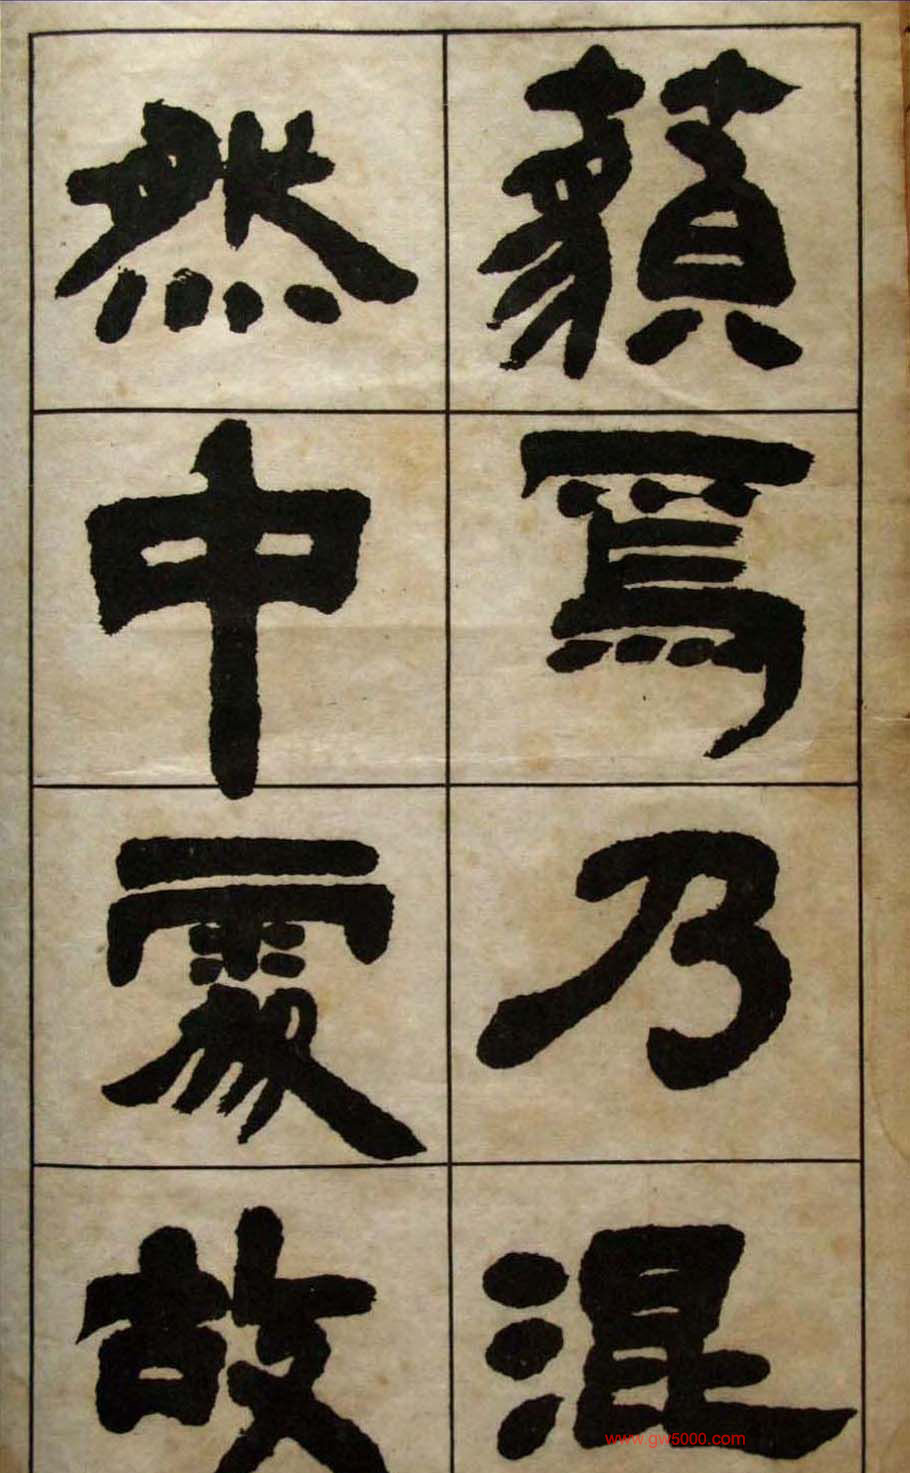 藐焉乃混
然中處故
www.gw5000.com